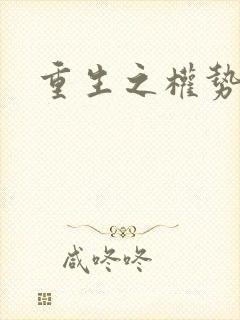 重生之權勢
咸咚咚